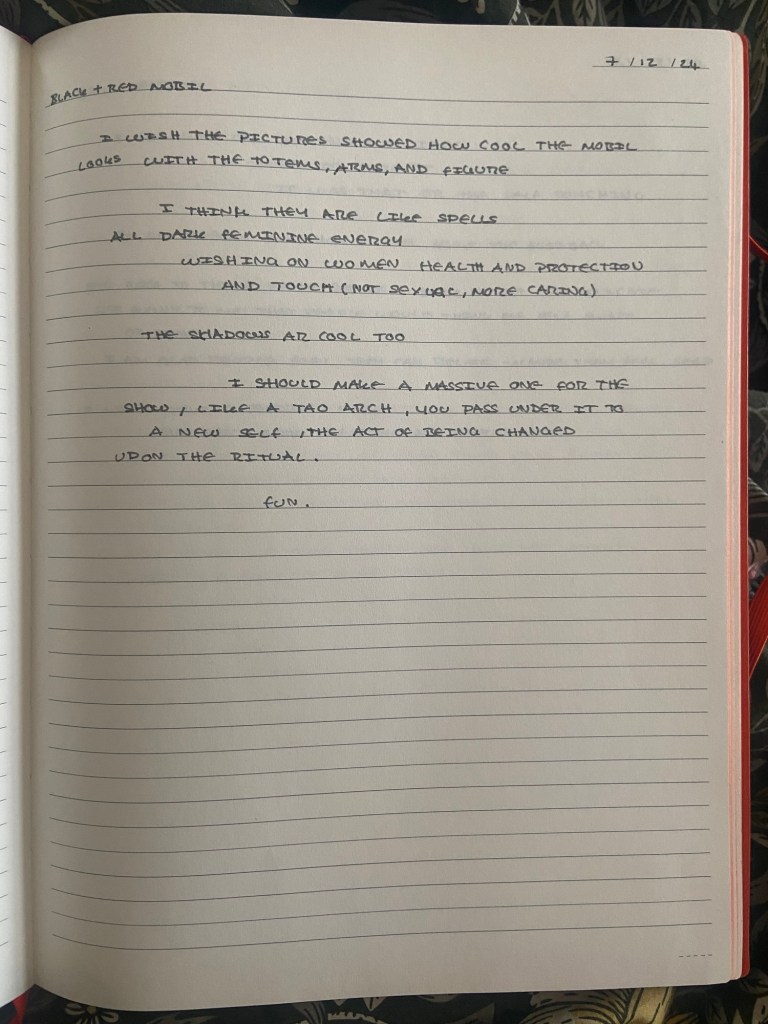 7/12/24
BLACK + RED MOBIL
I WISH THE PICTURES SHOWED HOW COOL THE MOBIL
LOOKS WITH THE TOTEMS, ARMS, AND FIGURE
I THINK THEY ARE LIKE SPELLS
ALL DARK FEMININE ENERGY
WISHING ON WOMEN HEALTH AND PROTECTION
AND TOUCH (NOT SEXUAL, MORE CARING)
THE SHADOWS AR COOL TOO
I SHOULD MAKE A MASSIVE ONE FOR THE
SHOW, LIKE A TAO ARCH, YOU PASS UNDER IT TO
A NEW SELF, THE ACT OF BEING CHANGED
UPON THE RITUAL.
FUN.